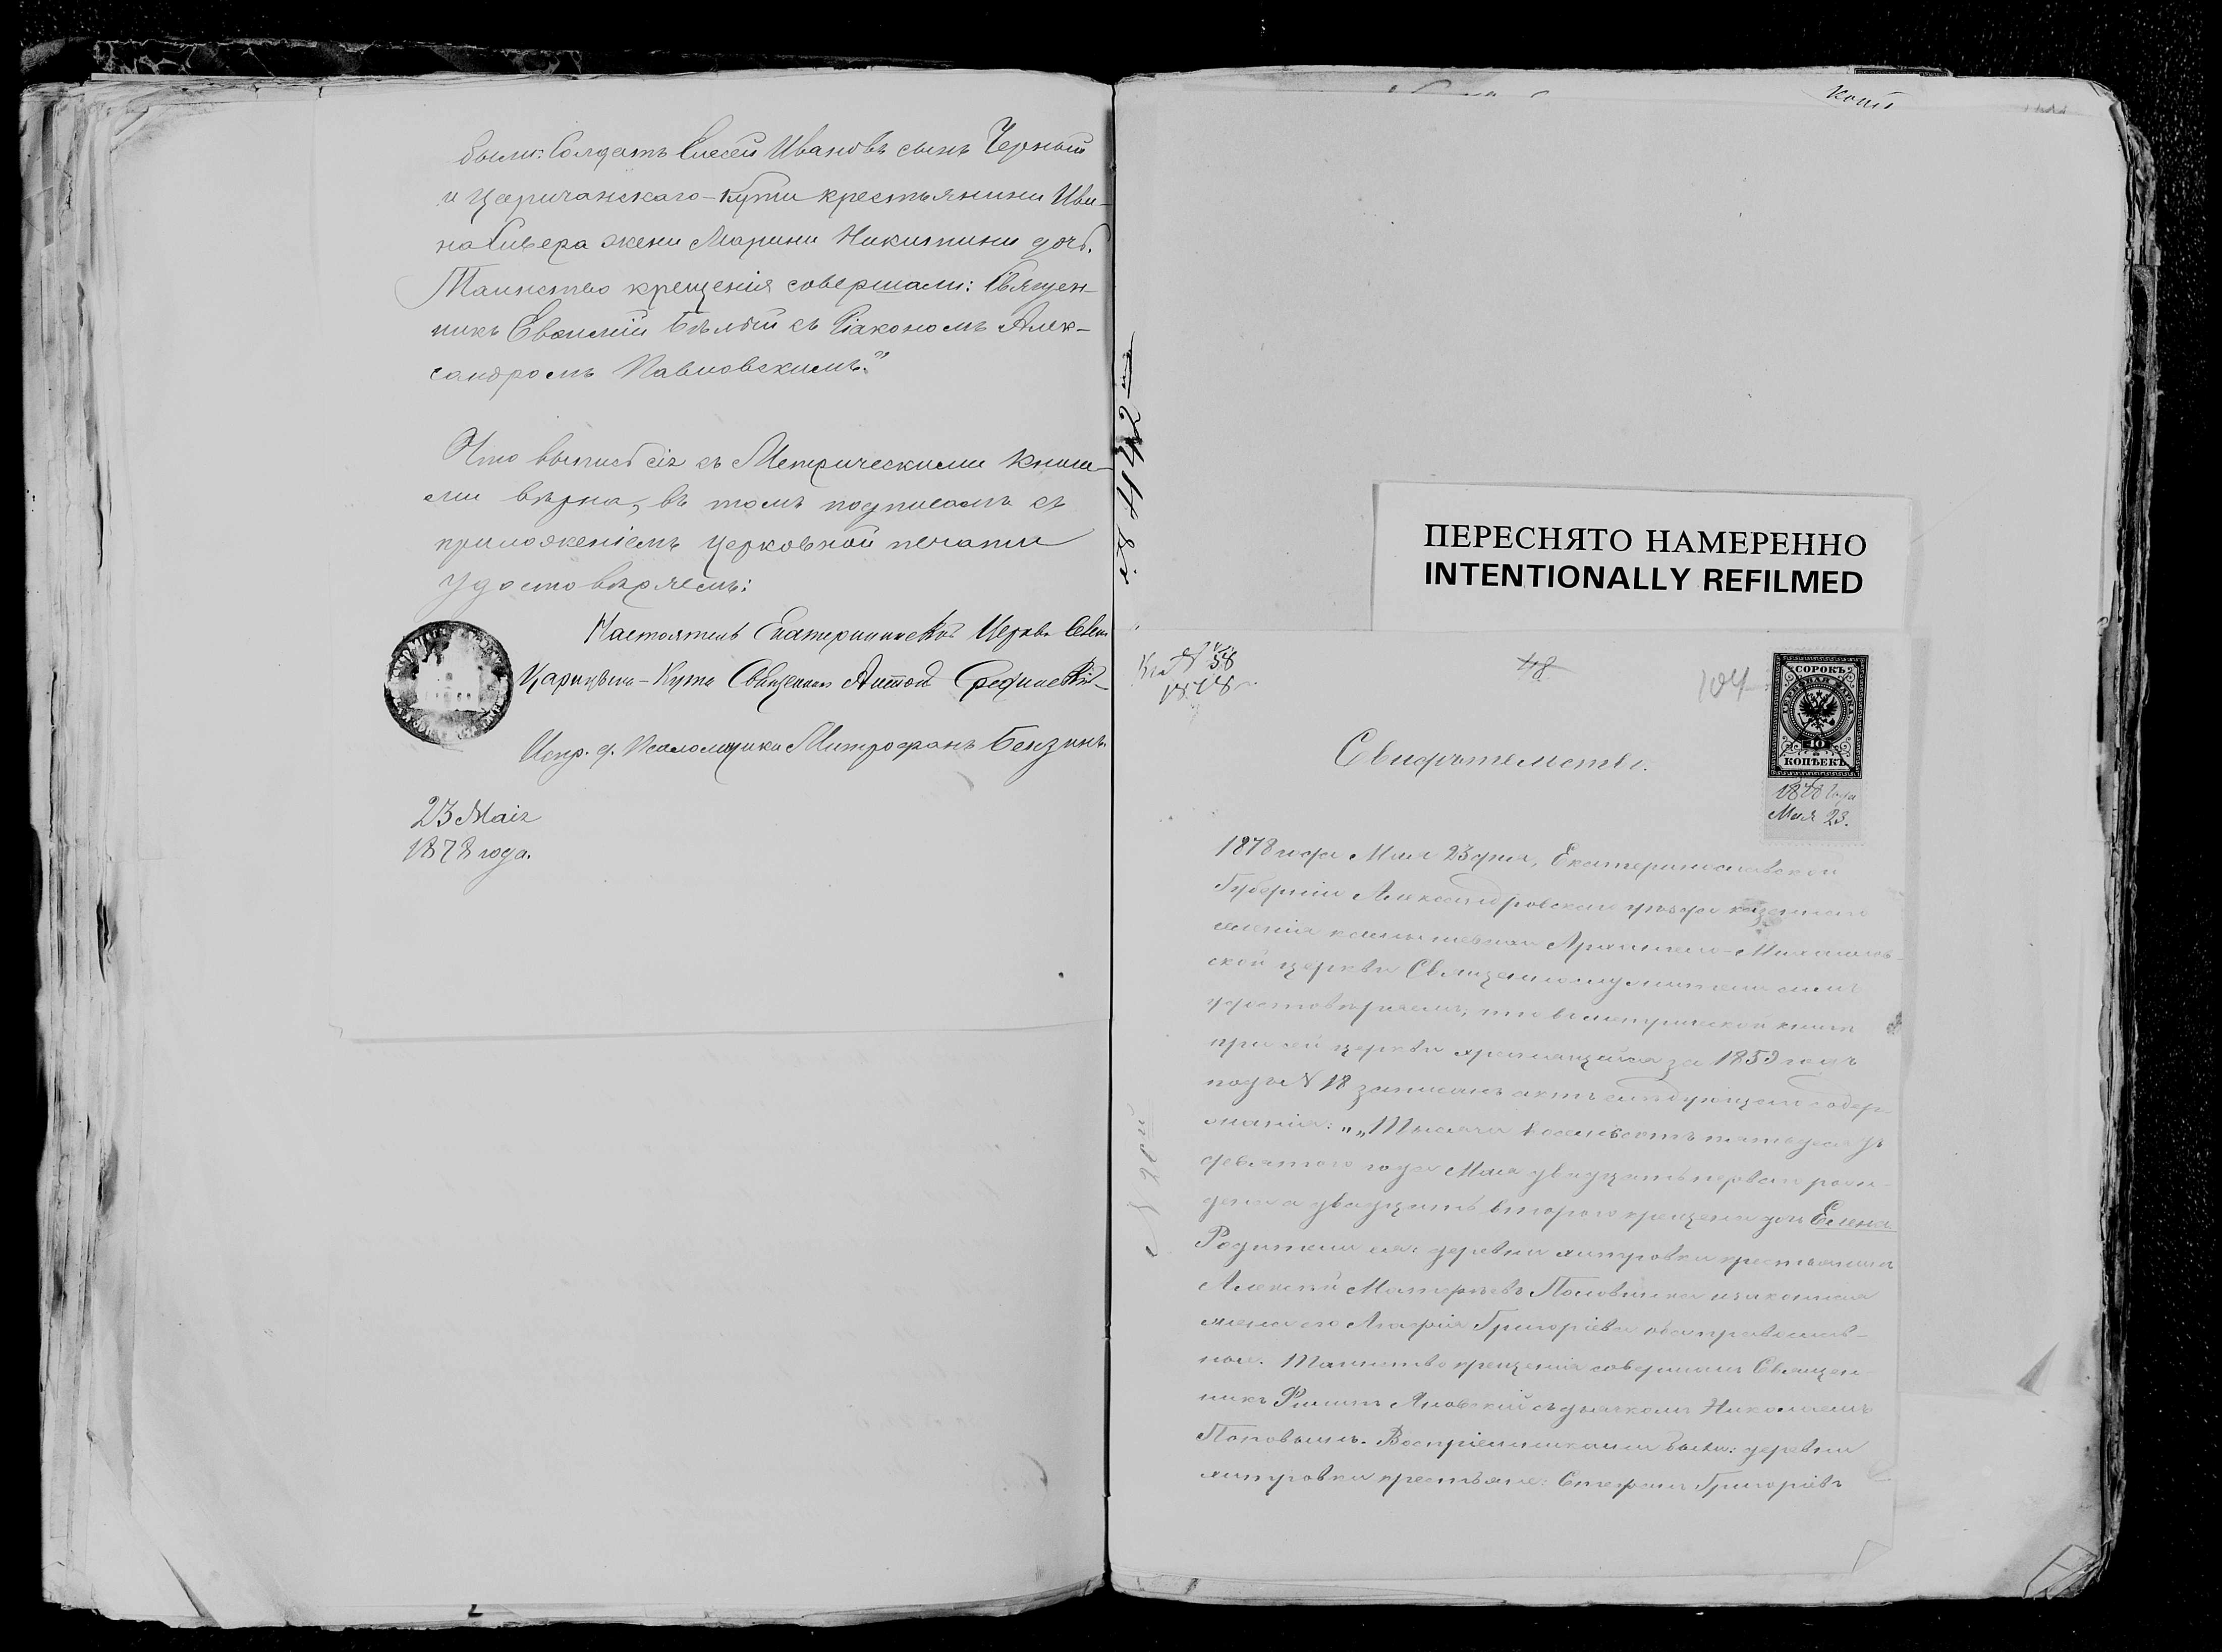 были: Солдатъ Елесей Ивановъ сынъ Черный
и Царичанскаго-Кута крестьянина Ива-
на Сивера жена Марина Никитина дочь.
Таинство крещенія совершали: Священ-
никъ Евѳимій Бѣлый съ Діакономъ Алек-
сандромъ Павловскимъ."
Что выпись сія съ Метрическими Книга-
ми вѣрна, въ томъ подписомъ съ
приложеніемъ церковной печати
удостовѣряемъ:
Настоятель Екатерининской Церкви Села
Царицына-Кута Священникъ Антоній
Испр. д. Псаломщика Митрофанъ Бензинъ
23 Маія
1878 года.
ПЕРЕСНЯТО НАМЕРЕННО
INTENTIONALLY REFILMED
48
104
СОРОКЪ
ГЕРБОВАЯ МАРКА
40
КОПѢЕКЪ
1878 года
Мая 23.
Свидѣтельство.
1878 года Мая 23 дня, Екатеринославской
Губерніи Александровскаго уѣзда казеннаго
селенія Камышевахи Архангело-Михайлов-
ской церкви Священноцерковнослужители симъ
удостовѣряемъ, что въ метрической книгѣ
при сей церкви хранящейся за 1859 годъ
подъ N 18 записанъ актъ слѣдующаго содер-
жанія: „„Тысяча восемьсотъ пятьдесятъ
девятого года Мая двадцать перваго рож-
дена а двадцать второго крещена дочь Елена
Родители ея: деревни крестьянинъ
Алексѣй Матвѣевъ и законная
жена его Агафія Григоріева оба православ-
ные. Таинство крещенія совершалъ Священ-
никъ Филиппъ Яновскій съ дьячкомъ Николаемъ
Поповымъ. Воспріемниками были: деревни
крестьяне: Стефанъ Григоріевъ